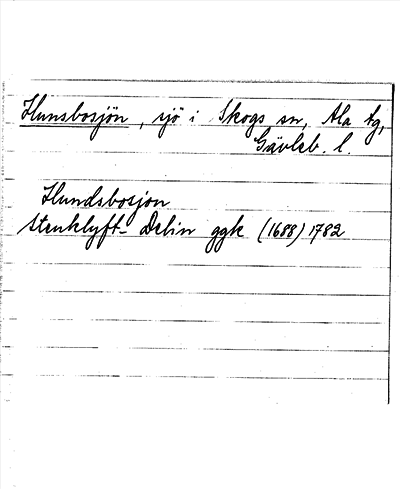 Hunsbosjön, sjö i Skogs sn, Ala tg,
Gävleb. l.
Hundsbosjon
Stenklyft- Delin ggk (1688) 1782